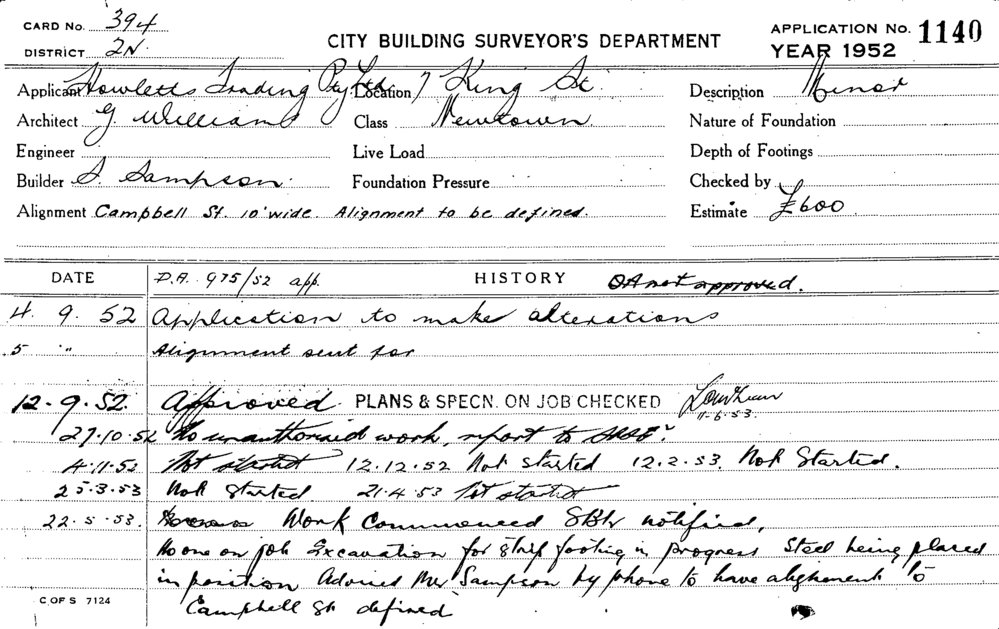 CARD No. 394
DISTRICT 2N.
CITY BUILDING SURVEYOR'S DEPARTMENT
APPLICATION No. 1140
YEAR 1952
Applicant Howletts Trading Pty Ltd Location 7 King St. Description Minor
Architect G. Williams Class Newtown. Nature of Foundation
Engineer Live Load Depth of Footings
Builder S. Sampson. Foundation Pressure Checked by
Alignment Campbell St. 10' wide. Alignment to be defined. Estimate £600
DATE D.A. 975/52 app. HISTORY DA not approved.
4. 9. 52 Application to make alterations
5 " Alignment sent for
12. 9. 52. Approved. PLANS & SPECN. ON JOB CHECKED 11-6-53.
27.10.52 No unauthorised work, report to
4.11.52 Not started 12.12.52 Not started 12.2.53. Not Started.
25.3.53 Not Started. 21.4.53 Not started
22.5.53. Work Commenced notified.
No one on job Excavation for strip footing in progress Steel being placed
in position Advised Mr Sampson by phone to have alighment to
Campbell St defined
C OF S 7124